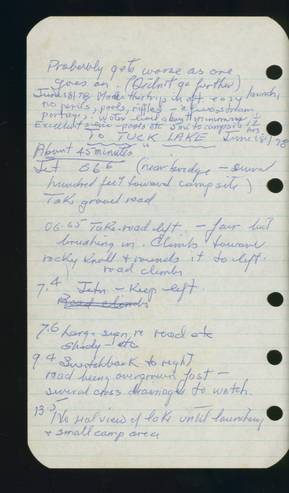 Probably gets worse as one
goes on. (Didn't go further)
June 18/78 Made this trip launch,
no pools, riffles
portages. Water line about
Excellent pools etc to campsite
TO TUCK LAKE June 18/78
About 45 minutes
Jct 0.6.6 (near bridge - several
hundred feet toward campsite)
Take gravel road
06.65 Take road left - fair but
brushing in. Climbs toward
rocky knoll & rounds it to left.
road climbs
7.4 Jctn - Keep left.
Road climbs
7.6 Large sign re road etc
study - etc
9.4 Switchback to right
road being overgrown fast -
several cross drainages to watch.
13.5 No real view of lake until launching
& small camp area